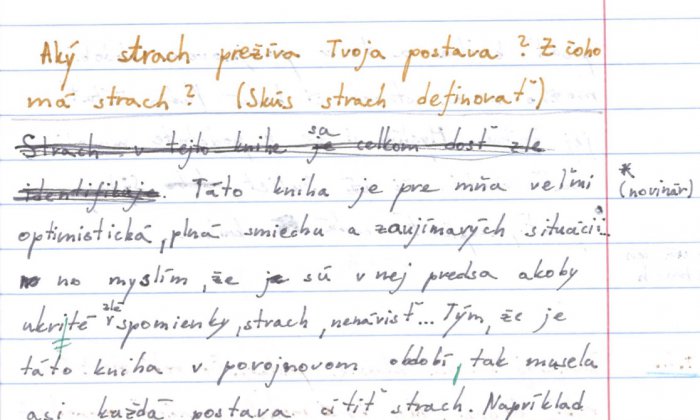 Aký strach prežíva Tvoja postava? Z čoho
má strach? (Skús strach definovať)
Strach v tejto knihe je sa celkom dosť zle
identifikuje. Táto kniha je pre mňa veľmi
* (novinár)
optimistická, plná smiechu a zaujímavých situácií
no no myslím, že je sú v nej predsa akoby
ukrité zlé spomienky, strach, nenávisť... Tým, že je
táto kniha v povojnovom období, tak musela
asi každá postava cítiť strach. Napríklad